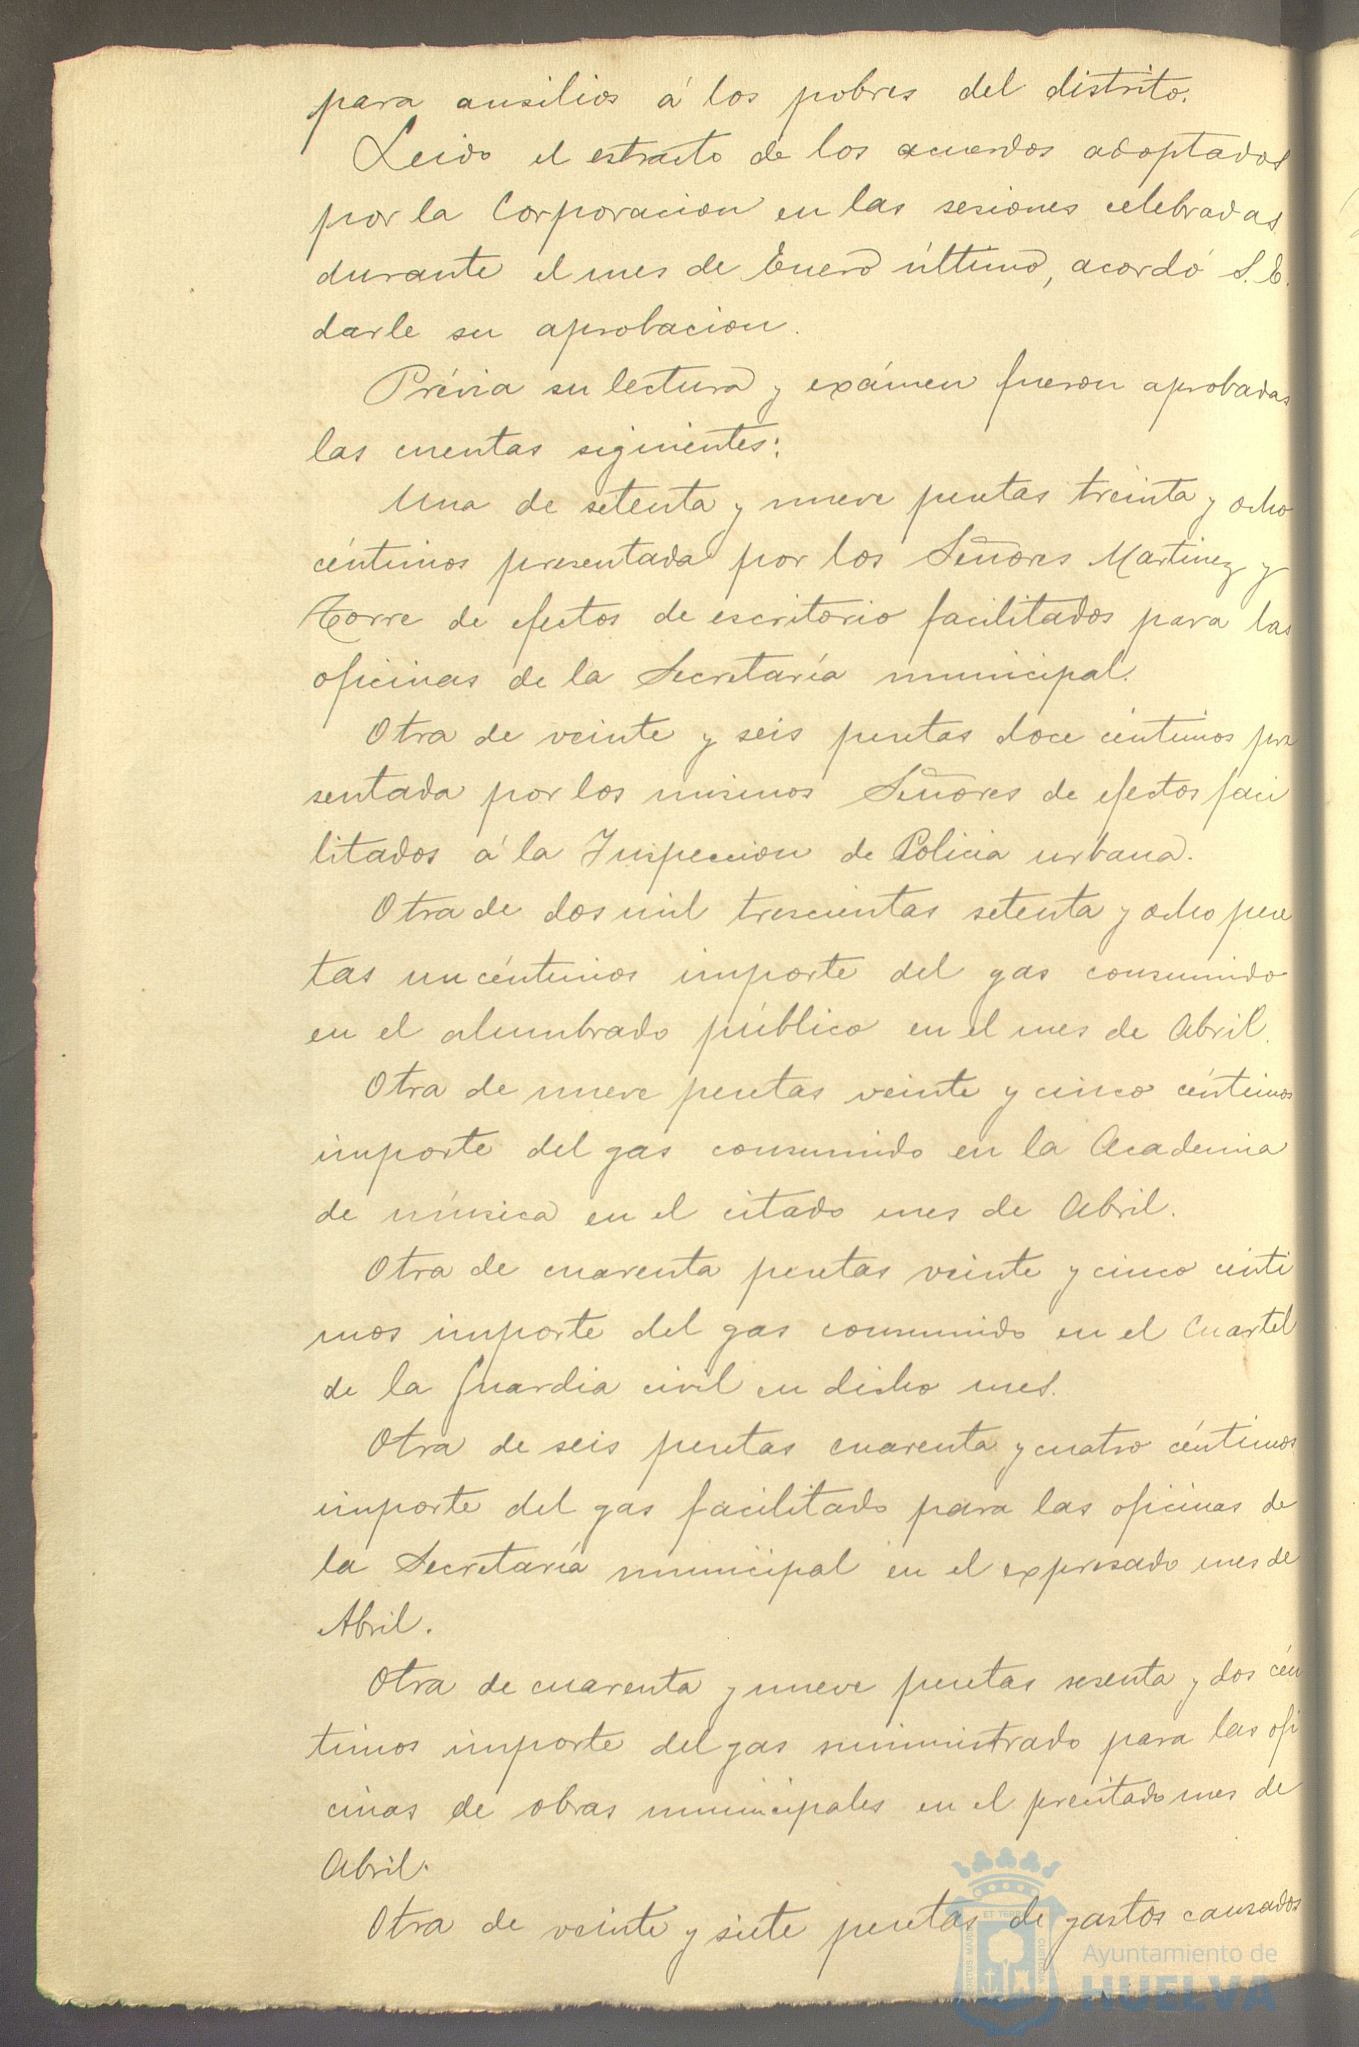 para ausilios á los pobres del distrito.
Leido el estracto de los acuerdos adoptados
por la Corporacion en las sesiones celebradas
durante el mes de Enero último, acordó S. E.
darle su aprobacion.
Prévia su lectura y exámen fueron aprobadas
las cuentas siguientes:
Una de setenta y nueve pesetas treinta y ocho
céntimos presentada por los Señores Martinez y
Torre de efectos de escritorio facilitados para las
oficinas de la Secretaría municipal.
Otra de veinte y seis pesetas doce céntimos pre
sentada por los mismos Señores de efectos faci
litados á la Inspeccion de Policia urbana.
Otra de dos mil trescientas setenta y ocho pese
tas un céntimos importe del gas consumido
en el alumbrado público en el mes de Abril.
Otra de nueve pesetas veinte y cinco céntimos
importe del gas consumido en la Academia
de música en el citado mes de Abril.
Otra de cuarenta pesetas veinte y cinco cénti
mos importe del gas consumido en el Cuartel
de la Guardia civil en dicho mes.
Otra de seis pesetas cuarenta y cuatro céntimos
importe del gas facilitado para las oficinas de
la Secretaría municipal en el expresado mes de
Abril.
Otra de cuarenta y nueve pesetas sesenta y dos cén
timos importe del gas suministrado para las ofi
cinas de obras municipales en el precitado mes de
Abril.
Otra de veinte y siete pesetas de gastos causados
PORTUS MARIS ET TERRAE CUSTODIA
Ayuntamiento de
HUELVA